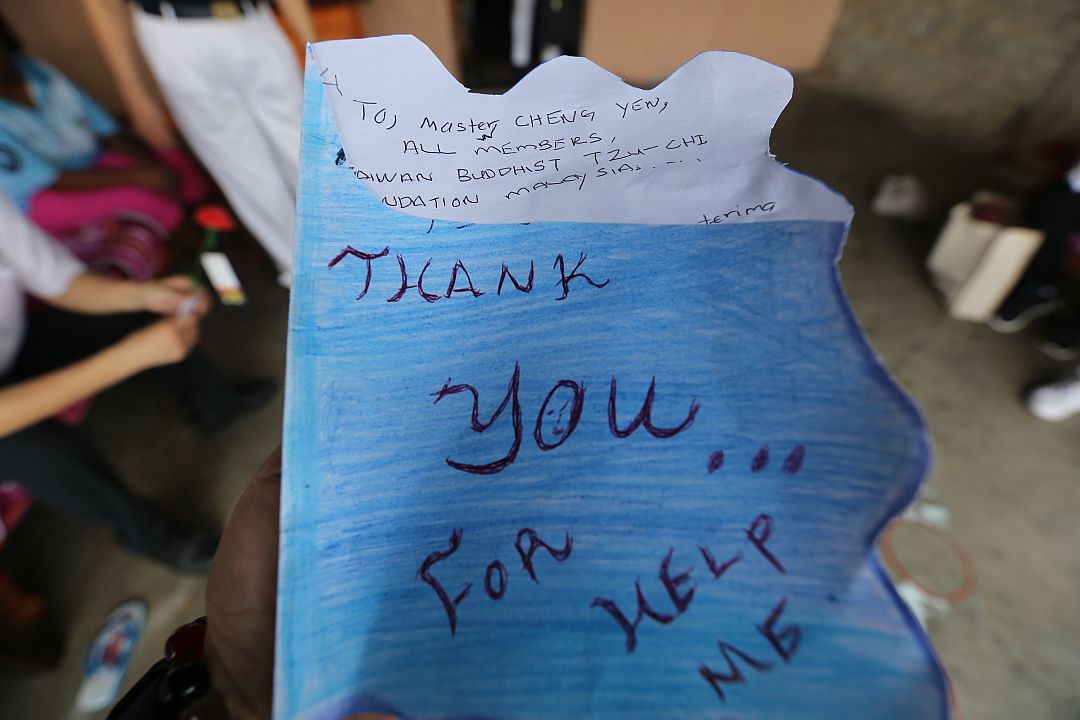 TO, Master CHENG YEN,
ALL MEMBERS,
AIWAN BUDDHIST TZU-CHI
NDATION malaysia.....
terima
THANK
YOU...
FOR
HELP
ME